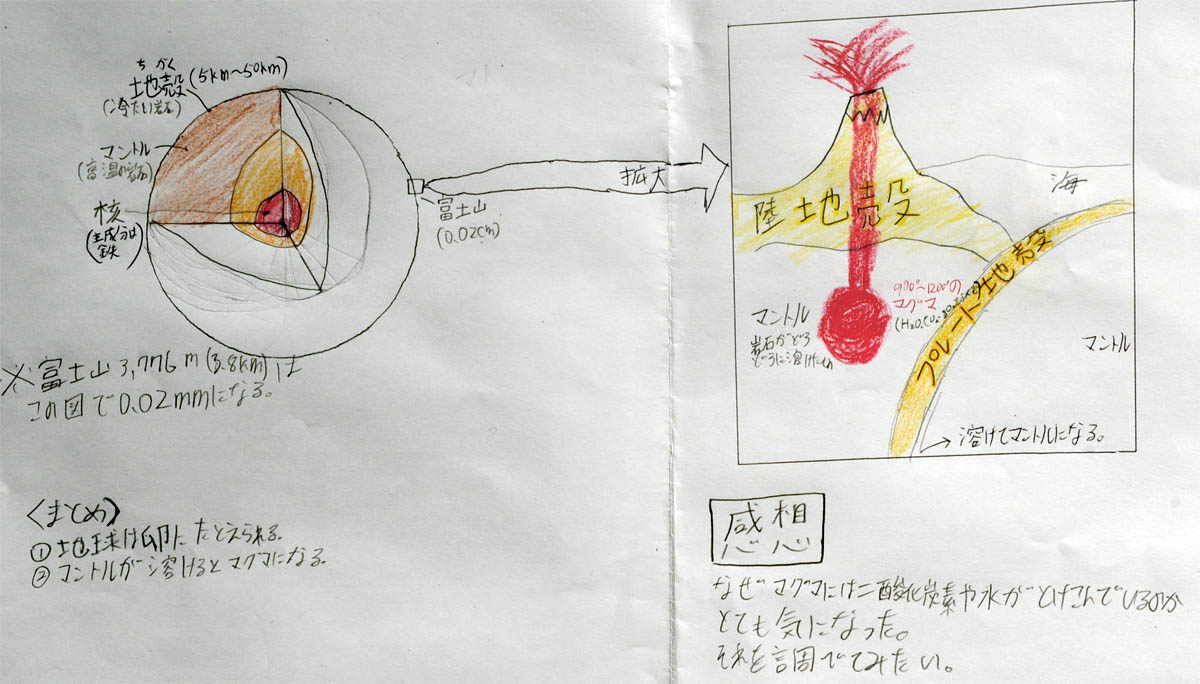 ちかく
地殻(5km〜50km)
(冷たい岩石)
マントル
(高温の岩石)
核
(主成分は
鉄)
拡大
富士山
(0.02cm)
※富士山3,776m(3.8km)は
この図で0.02mmになる。
〈まとめ〉
①地球は卵にたとえられる。
②マントルが溶けるとマグマになる。
海
陸地殻
900°〜1200°の
マグマ
(H₂O.CO₂
マントル
岩石がどろ
どろに溶けてる
プレート地殻
マントル
→溶けてマントルになる。
感想
なぜマグマには二酸化炭素や水がとけこんでいるのか
とても気になった。
それを調べてみたい。